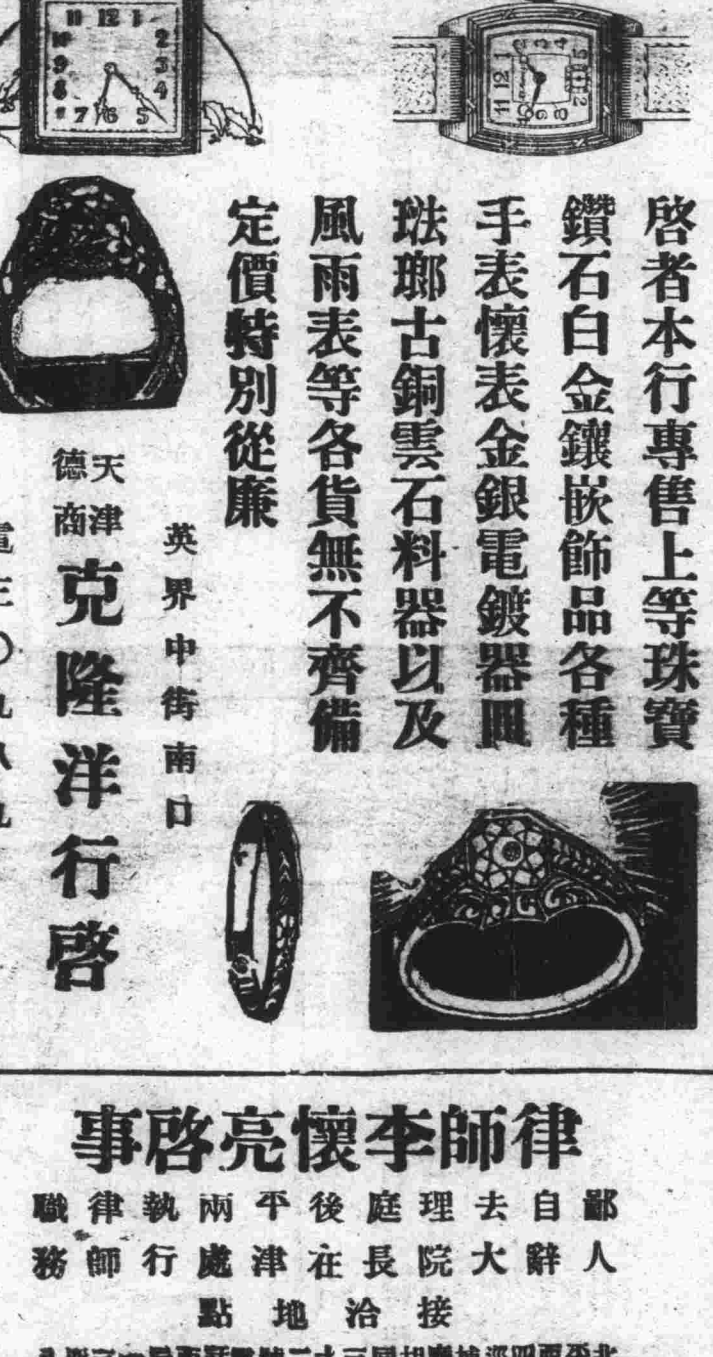 啓者本行專售上等珠寶
鑽石白金鑲嵌飾品各種
手表懷表金銀電鍍器皿
琺瑯古銅雲石料器以及
風雨表等各貨無不齊備
定價特別從廉
英界中街南口
天津
德商
克隆洋行啓
律師李懷亮啓事
鄙人
自辭
去大
理院
庭長
後在
平津
兩處
執行
律師
職務
接洽地點